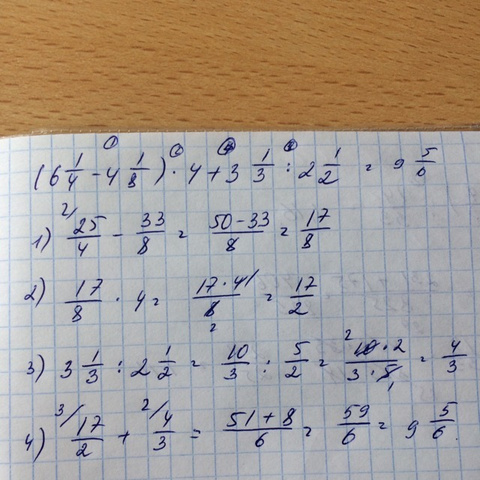 (6 1/4 - 4 1/8) · 4 + 3 1/3 : 2 1/2 = 9 5/6
1) 25/4 - 33/8 = 50-33/8 = 17/8
2) 17/8 · 4 = 17·4/8 = 17/2
3) 3 1/3 : 2 1/2 = 10/3 : 5/2 = 10·2/3·5 = 4/3
4) 17/2 + 4/3 = 51+8/6 = 59/6 = 9 5/6.